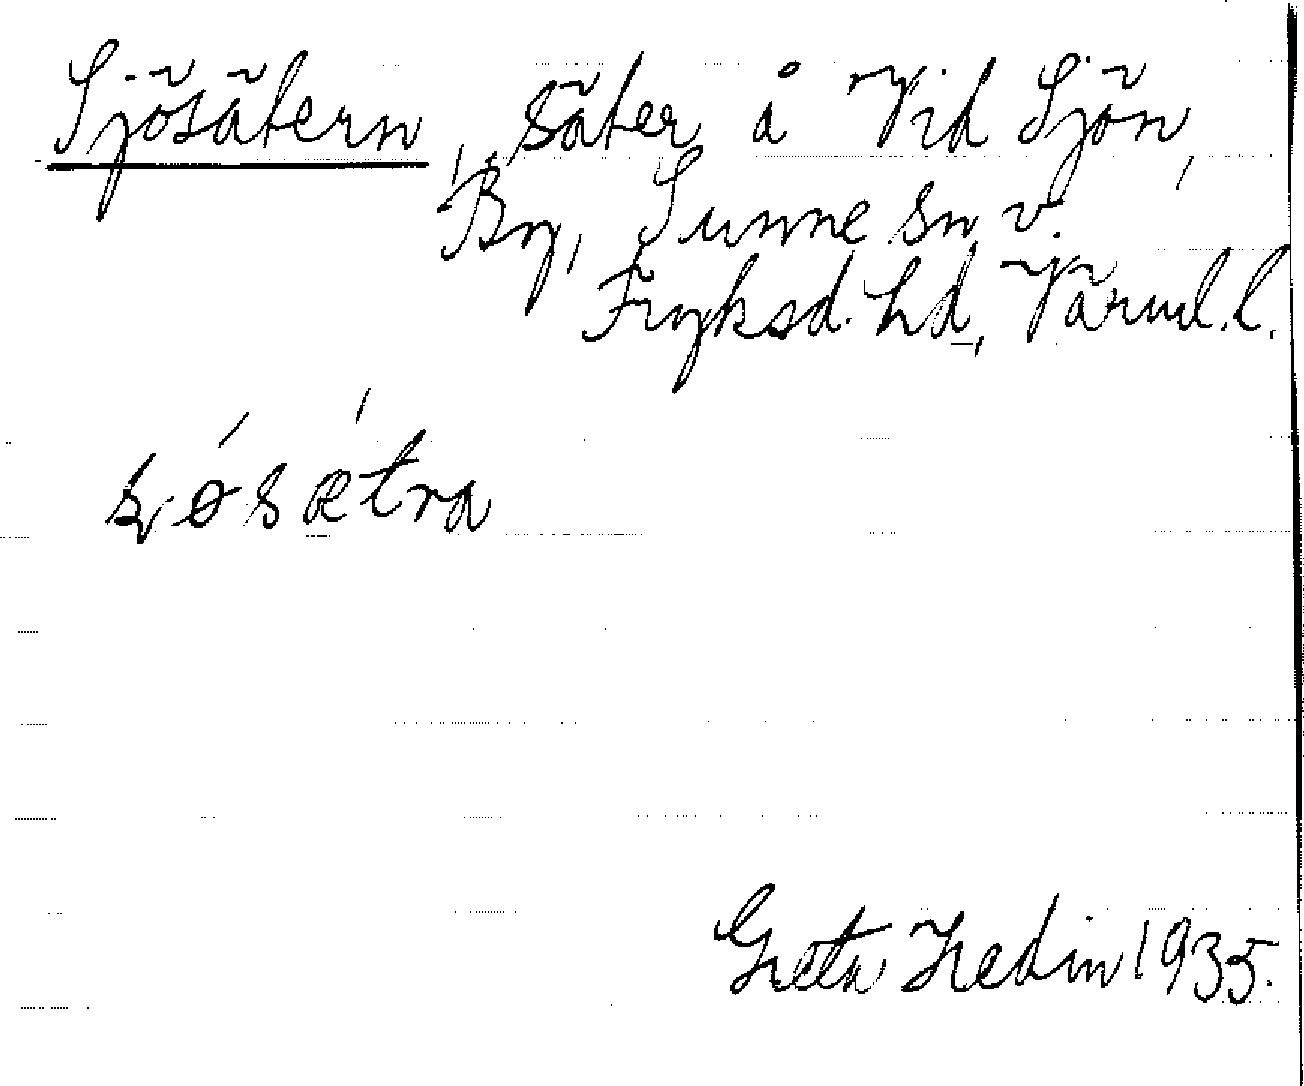 Sjösätern, säter å Vid Sjön,
By, Sunne sn v.
Fryksd. hd, Värml. l.
Greta Hedin 1935.